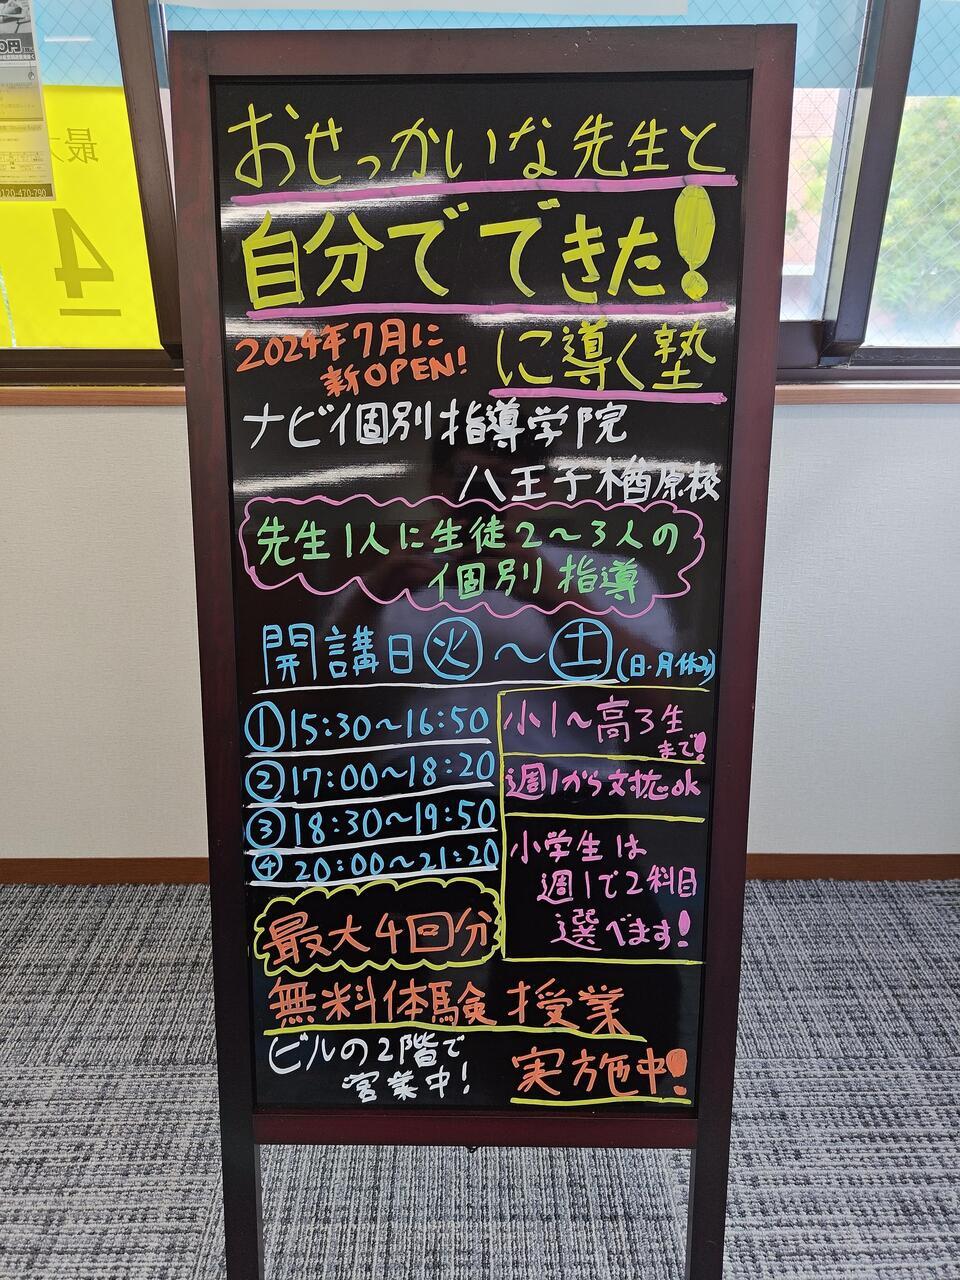 おせっかいな先生と
自分でできた!
に導く塾
2024年7月に
新OPEN!
ナビ個別指導学院
八王子楢原校
先生1人に生徒2～3人の
個別指導
開講日㊋～㊏(日・月休み)
①15:30～16:50
②17:00～18:20
③18:30～19:50
④20:00～21:20
小1～高3生
まで!
週1から対応ok
小学生は
週1で2科目
選べます!
最大4回分
無料体験授業
実施中!
ビルの2階で
営業中!
最
4
0120-470-790